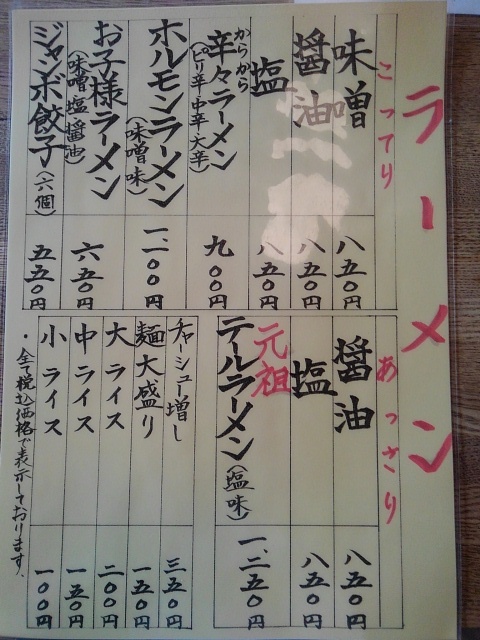 ラーメン
こってり
味噌 八五〇円
醤油 八五〇円
塩 八五〇円
辛々ラーメン 九〇〇円
からから
(ピリ辛 中辛 大辛)
ホルモンラーメン 一、一〇〇円
(味噌味)
お子様ラーメン 六五〇円
(味噌 塩 醤油)
ジャンボ餃子(六個) 五五〇円
あっさり
醤油 八五〇円
塩 八五〇円
元祖
テールラーメン(塩味) 一、二五〇円
チャーシュー増し 三五〇円
麺大盛り 一五〇円
大ライス 二〇〇円
中ライス 一五〇円
小ライス 一〇〇円
・全て税込価格で表示しております。